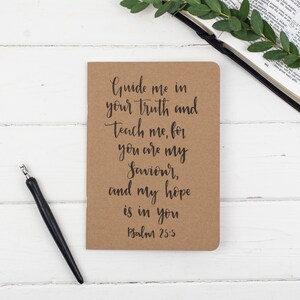 Guide me in
your truth and
teach me, for
you are my
Saviour,
and my hope
is in you
Psalm 25:5